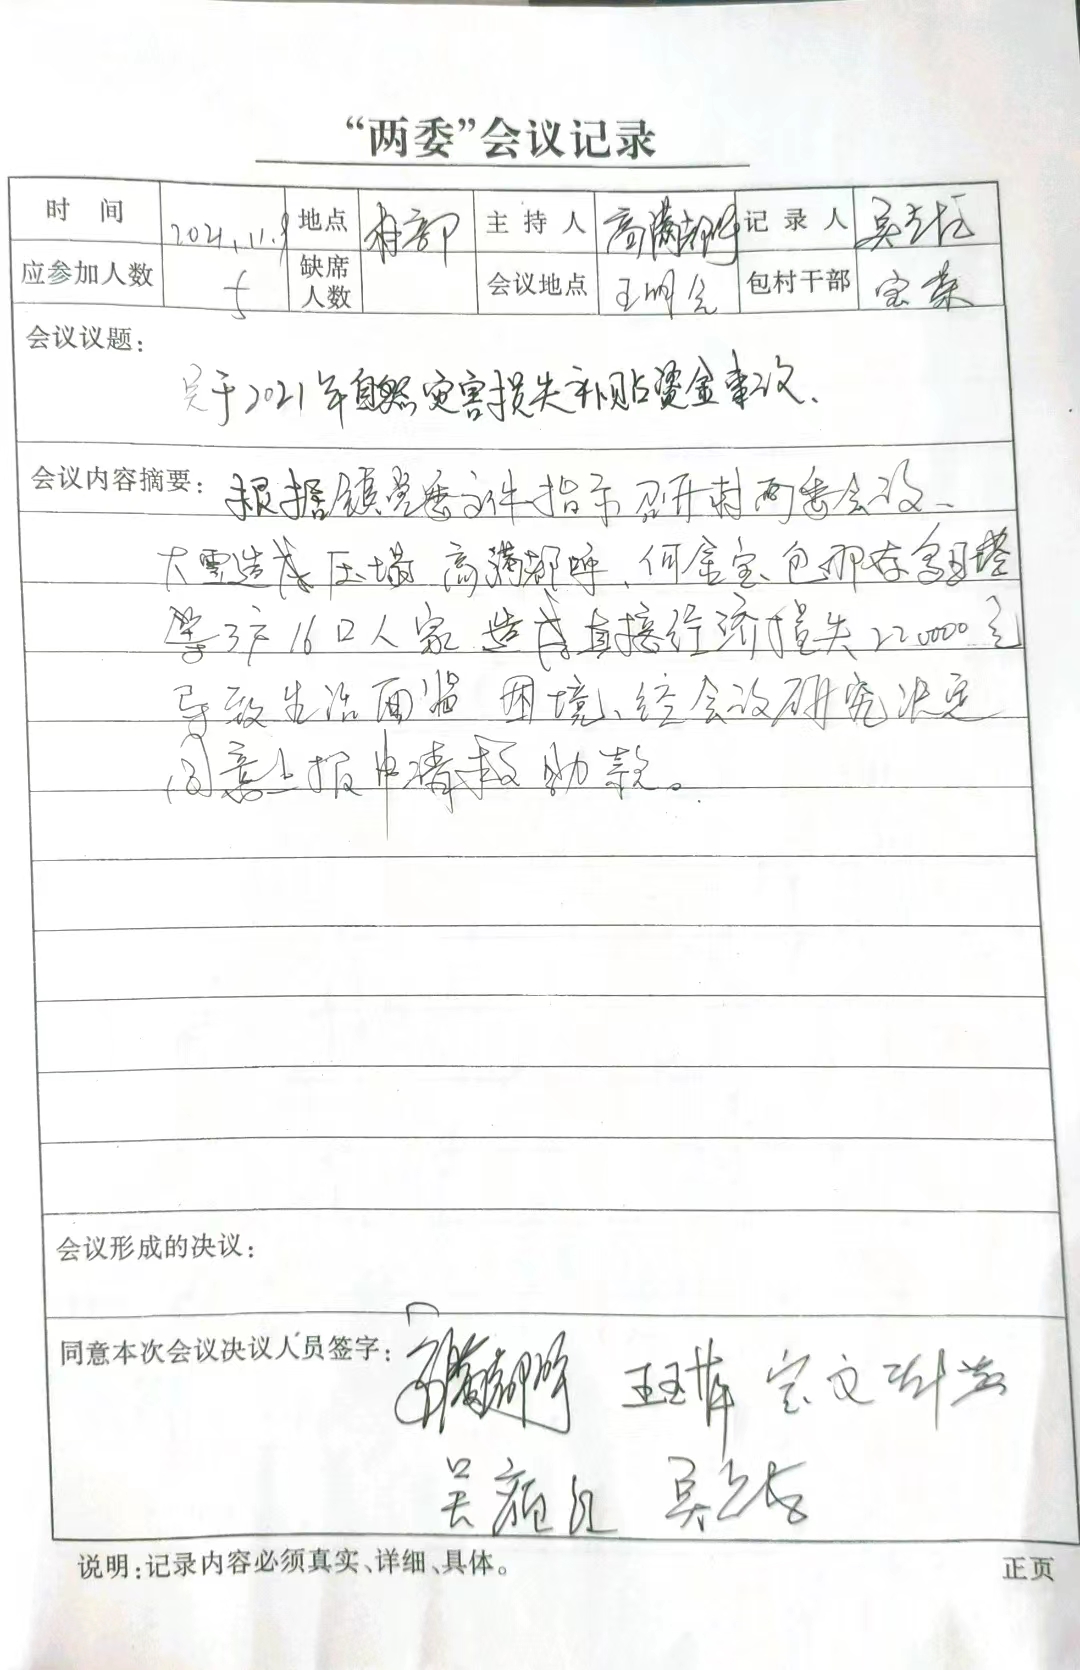 “两委”会议记录
时 间 2021.11.9 地点 村部 主 持 人 高满都呼 记 录 人 吴
应参加人数 5 缺席人数 会议地点 王明 包村干部 宝
会议议题:
关于2021年自然灾害损失补贴资金事议.
会议内容摘要: 根据镇党委文件指示召开村两委会议、
大雪造成压塌 高满都呼、何金宝、包那存乌日塔
等3户16口人家 造成直接经济损失220000元
导致生活面临 困境、经会议研究决定
同意上报申请救助款。
会议形成的决议:
同意本次会议决议人员签字: 高满都呼 王玉 宝文
吴 红 吴
说明:记录内容必须真实、详细、具体。 正页